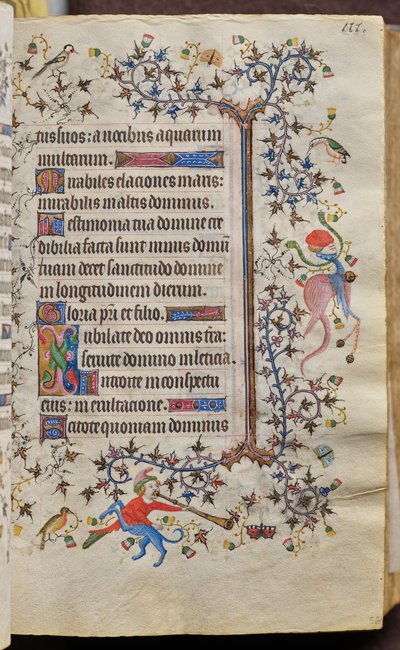 iii.
tus suos: a vocibus aquarum
multarum.
Mirabiles elaciones maris:
mirabilis in altis dominus.
Testimonia tua domine cre
dibilia facta sunt nimis domū
tuam decet sanctitudo domine
in longitudinem dierum.
Gloria pr̄i et filio.
Iubilate deo omnis tr̄a:
servite domino in leticia.
Introite in conspectu
eius: in exultacione.
Scitote quoniam dominus